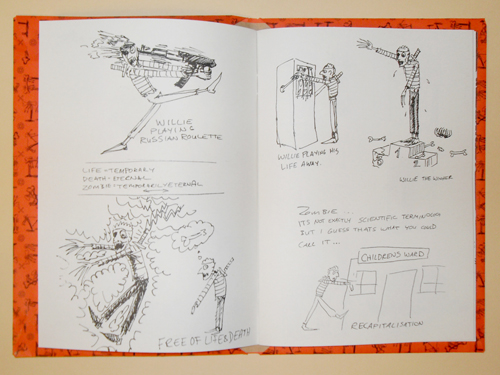 WILLIE
PLAYING
RUSSIAN ROULETTE
LIFE-TEMPORARY
DEATH-ETERNAL
ZOMBIE-TEMPORARILY-ETERNAL
FREE OF LIFE & DEATH
WILLIE PLAYING HIS
LIFE AWAY.
1
2
WILLIE THE WINNER
ZOMBIE...
ITS NOT EXACTLY SCIENTIFIC TERMINOLOGY
BUT I GUESS THATS WHAT YOU COULD
CALL IT...
CHILDRENS WARD
RECAPITALISATION